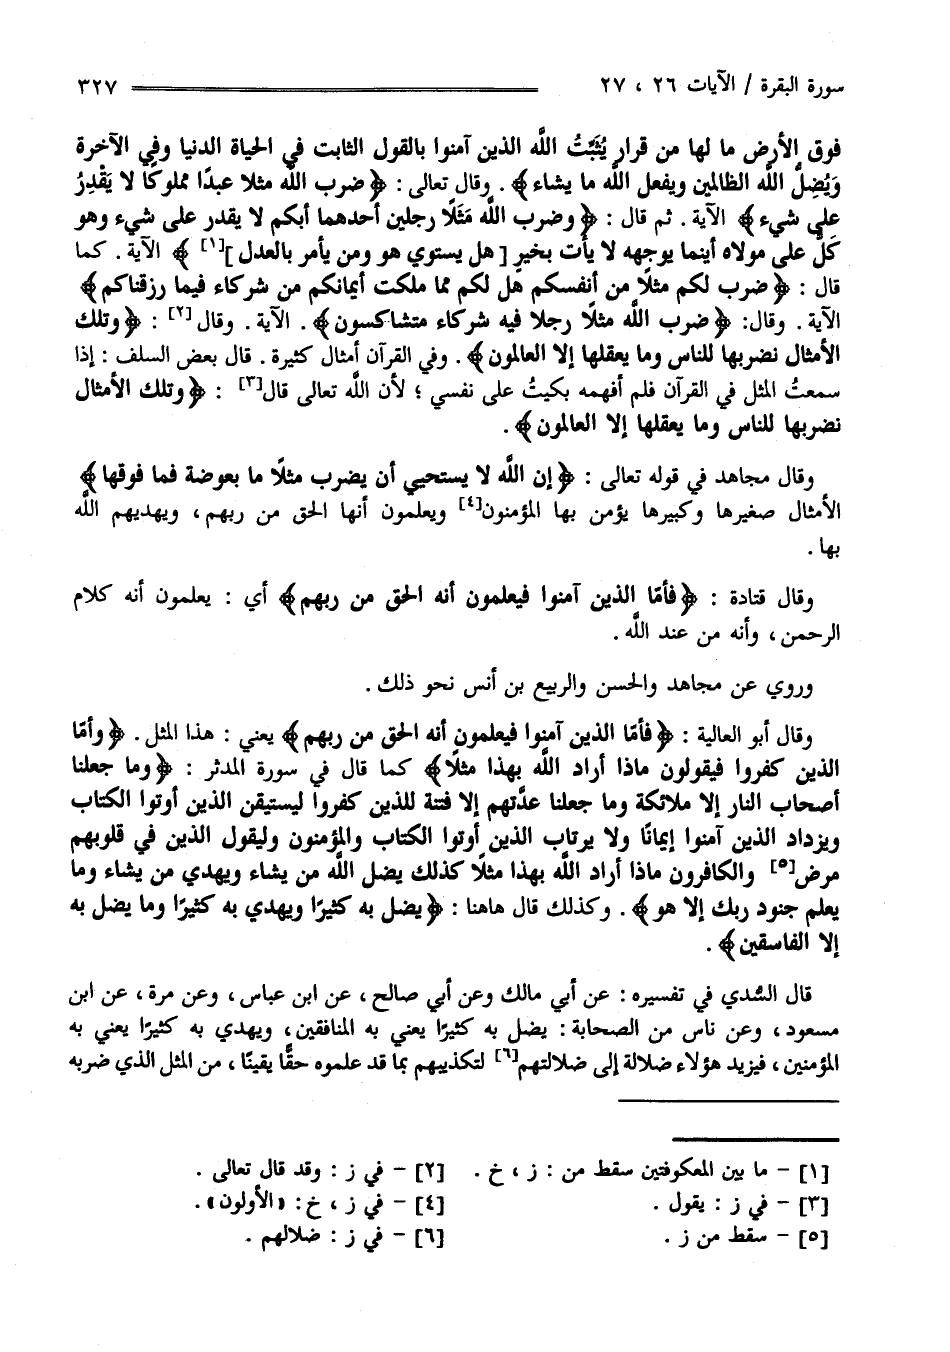 سورة البقرة / الآيات ٢٦ ، ٢٧ ٣٢٧
فوق الأرض ما لها من قرار يُثَبِّتُ اللَّه الذين آمنوا بالقول الثابت في الحياة الدنيا وفي الآخرة
وَيُضِلُّ اللَّه الظالمين ويفعل اللَّه ما يشاء﴾ . وقال تعالى : ﴿ضرب اللَّه مثلا عبدًا مملوكًا لا يَقْدِرُ
على شيء﴾ الآية . ثم قال : ﴿وضرب اللَّه مَثَلًا رجلين أحدهما أبكم لا يقدر على شيء وهو
كَلٌّ على مولاه أينما يوجهه لا يأت بخير [هل يستوي هو ومن يأمر بالعدل][١] ﴾ الآية . كما
قال : ﴿ضرب لكم مثلًا من أنفسكم هل لكم مما ملكت أيمانكم من شركاء فيما رزقناكم﴾
الآية . وقال: ﴿ضرب اللَّه مثلًا رجلا فيه شركاء متشاكسون﴾ . الآية . وقال[٢] : ﴿وتلك
الأمثال نضربها للناس وما يعقلها إلا العالمون﴾ . وفي القرآن أمثال كثيرة . قال بعض السلف : إذا
سمعتُ المثل في القرآن فلم أفهمه بكيتُ على نفسي ؛ لأن اللَّه تعالى قال[٣] : ﴿وتلك الأمثال
نضربها للناس وما يعقلها إلا العالمون﴾ .
وقال مجاهد في قوله تعالى : ﴿إن اللَّه لا يستحيي أن يضرب مثلًا ما بعوضة فما فوقها﴾
الأمثال صغيرها وكبيرها يؤمن بها المؤمنون[٤] ويعلمون أنها الحق من ربهم ، ويهديهم اللَّه
بها .
وقال قتادة : ﴿فأمّا الذين آمنوا فيعلمون أنه الحق من ربهم﴾ أي : يعلمون أنه كلام
الرحمن ، وأنه من عند اللَّه .
وروي عن مجاهد والحسن والربيع بن أنس نحو ذلك .
وقال أبو العالية : ﴿فأمّا الذين آمنوا فيعلمون أنه الحق من ربهم﴾ يعني : هذا المثل . ﴿وأمّا
الذين كفروا فيقولون ماذا أراد اللَّه بهذا مثلًا﴾ كما قال في سورة المدثر : ﴿وما جعلنا
أصحاب النار إلا ملائكة وما جعلنا عدَّتهم إلا فتنة للذين كفروا ليستيقن الذين أوتوا الكتاب
ويزداد الذين آمنوا إيمانًا ولا يرتاب الذين أوتوا الكتاب والمؤمنون وليقول الذين في قلوبهم
مرض[٥] والكافرون ماذا أراد اللَّه بهذا مثلًا كذلك يضل اللَّه من يشاء ويهدي من يشاء وما
يعلم جنود ربك إلا هو﴾ . وكذلك قال هاهنا : ﴿يضل به كثيرًا ويهدي به كثيرًا وما يضل به
إلا الفاسقين﴾ .
قال السُّدي في تفسيره : عن أبي مالك وعن أبي صالح ، عن ابن عباس ، وعن مرة ، عن ابن
مسعود ، وعن ناس من الصحابة : يضل به كثيرًا يعني به المنافقين ، ويهدي به كثيرًا يعني به
المؤمنين ، فيزيد هؤلاء ضلالة إلى ضلالتهم[٦] لتكذيبهم بما قد علموه حقًّا يقينًا ، من المثل الذي ضربه
[١] – ما بين المعكوفتين سقط من : ز ، خ . [٢] – في ز : وقد قال تعالى .
[٣] – في ز : يقول . [٤] – في ز ، خ : «الأولون» .
[٥] – سقط من ز . [٦] – في ز : ضلالهم .